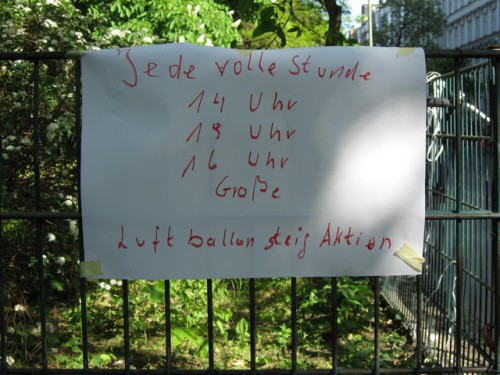 Jede volle Stunde
14 Uhr
15 Uhr
16 Uhr
Große
Luftballonsteig Aktion